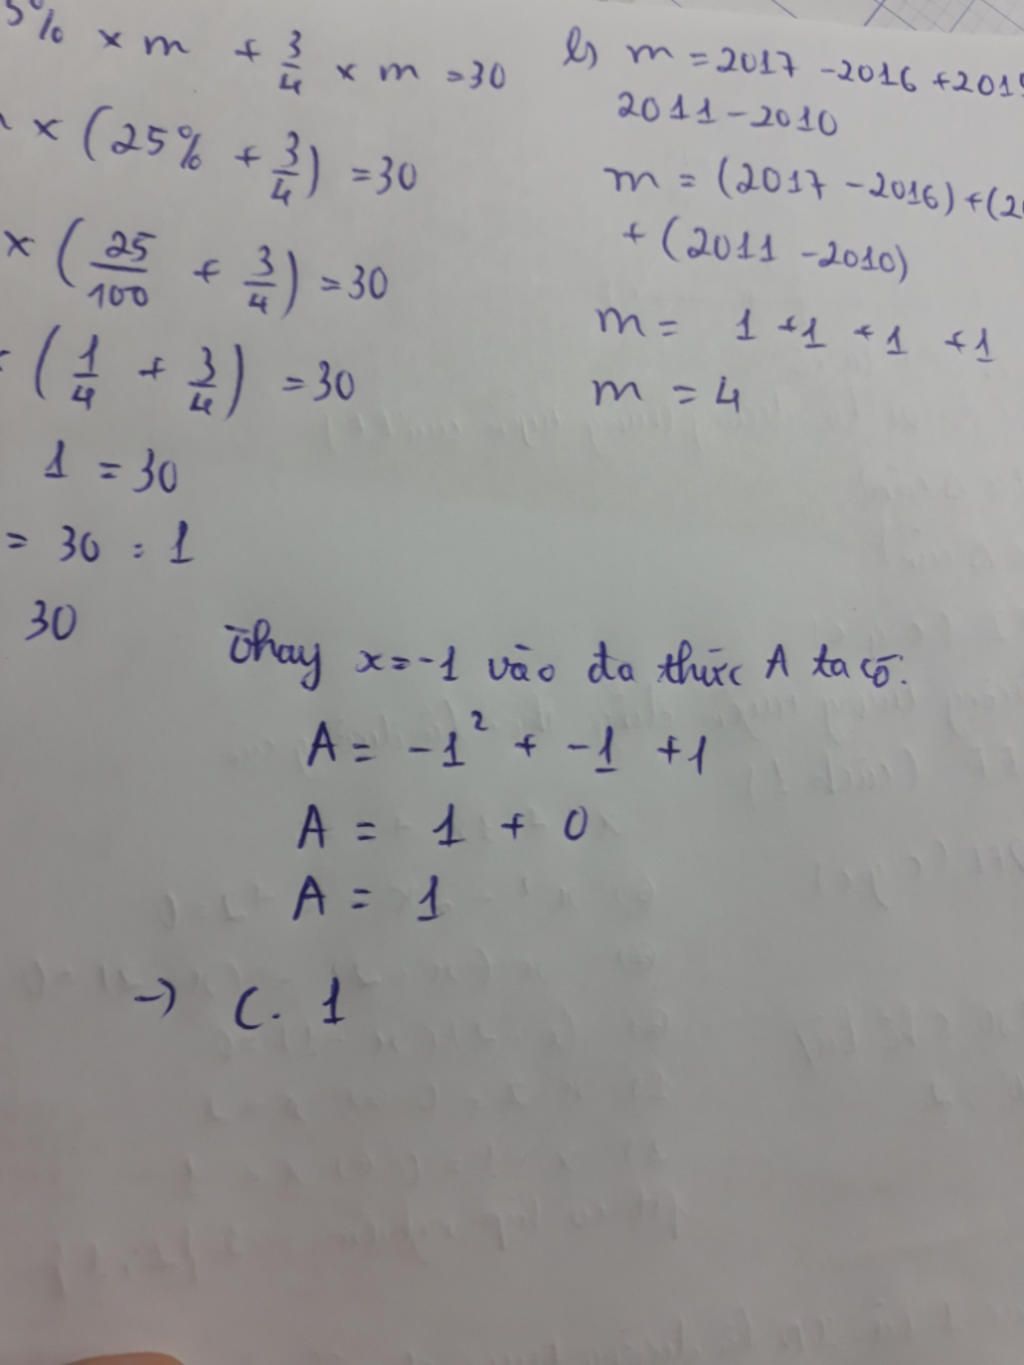 5% × m + 3/4 × m = 30
× (25% + 3/4) = 30
× (25/100 + 3/4) = 30
(1/4 + 3/4) = 30
1 = 30
= 30 : 1
30
b) m = 2017 - 2016 + 201
2011 - 2010
m = (2017 - 2016) + (2
+ (2011 - 2010)
m = 1 + 1 + 1 + 1
m = 4
Thay x = -1 vào đa thức A ta có:
A = -1² + -1 + 1
A = 1 + 0
A = 1
→ C. 1